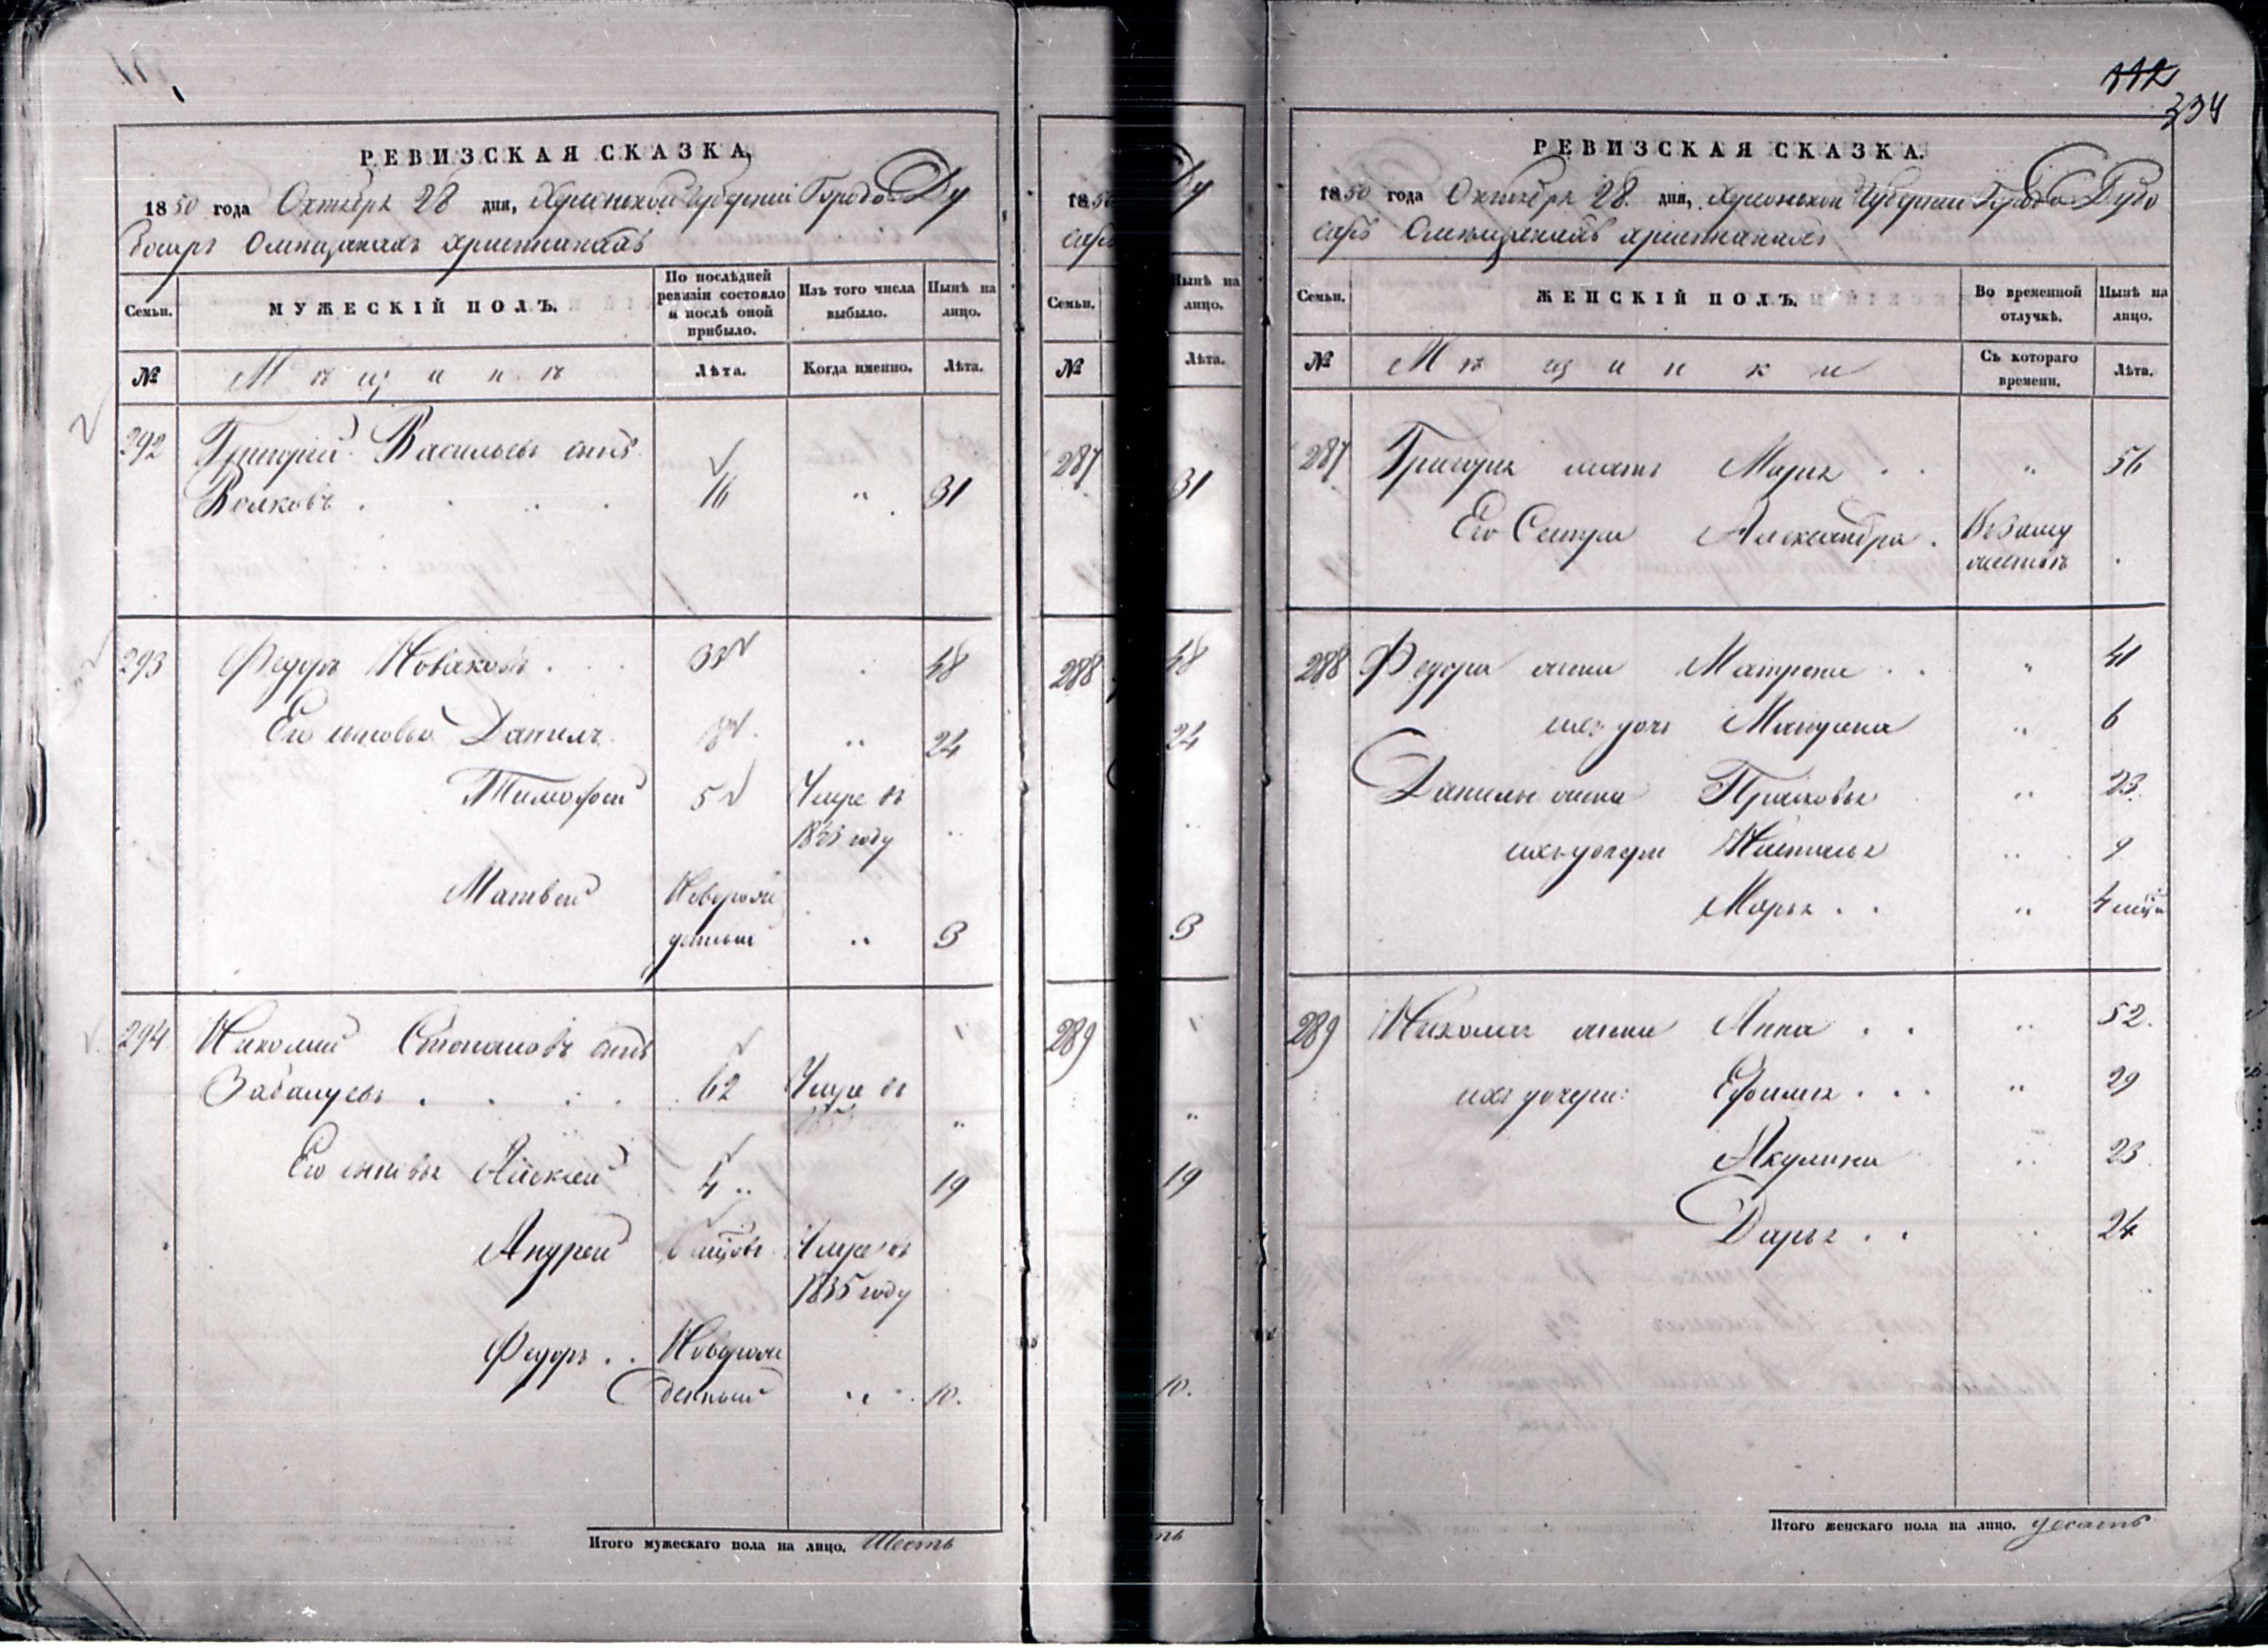 РЕВИЗСКАЯ СКАЗКА,
1850 года Октября 28 дня, Херсонской Губернии Города Ду
босаръ Омѣщанахъ христианахъ
Семьи. МУЖЕСКІЙ ПОЛЪ. По послѣдней ревизіи состояло и послѣ оной прибыло. Изъ того числа выбыло. Нынѣ на лицо.
№ Мѣщанѣ Лѣта. Когда именно. Лѣта.
292 Григорій Васильевъ сынъ
Волковъ . . . . 16 " 31
293 Федоръ Новаковъ . . . 33 . 48
Его сыновья Данила " 24
Тимофей 5 Умре въ
1843 году "
Матвей Новорож
денный " 3
294 Николай Степановъ сынъ
Забалуевъ . . . . 62 Умре въ
"
Его сыновья Алексей 4 " 19
Андрей 6 мцовъ Умре въ
1835 году
Федоръ . . Новорож
денный " 10.
Итого мужескаго пола на лицо. Шесть
1850
саръ
Семьи.
№
287
288
289
Ду
Нынѣ на лицо.
Лѣта.
31
48
24
"
3
"
19
10.
ть
112
334
РЕВИЗСКАЯ СКАЗКА.
1850 года Октября 28 дня, Херсонской Губернии Города Дубо
саръ Омѣщанахъ христианахъ
Семьи. ЖЕНСКІЙ ПОЛЪ. Во временной отлучкѣ. Нынѣ на лицо.
№ Мѣщанки Съ котораго времени. Лѣта.
287 Григорья мать Марья . . " 56
Его Сестра Александра . Въ заму
жествѣ .
288 Федора жена Матрена . . " 41
ихъ дочь " 6
Данилы жена Прасковья " 23
ихъ дочери Наталья " 9
Марья . . " 4 мцы
289 Николая жена Анна . . " 52.
ихъ дочери: Ефимья . . . " 29
Акулина " 23
Дарья . . " 24
Итого женскаго пола на лицо. десять